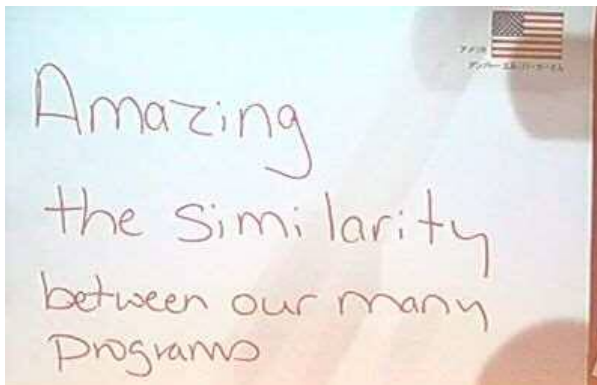 アメリカ
Amazing
the similarity
between our many
programs